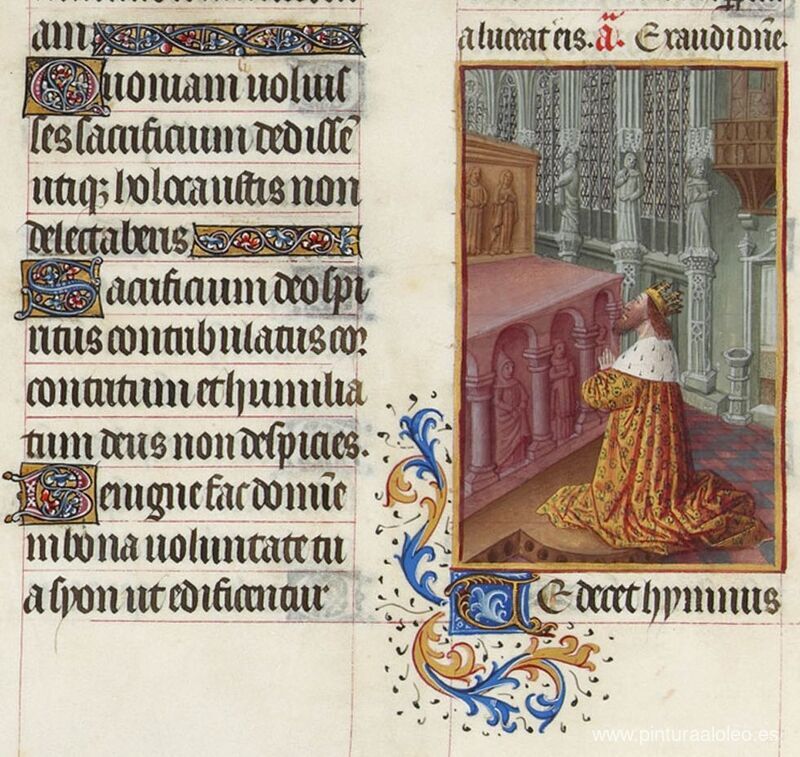 am
Quoniam voluis
ses sacrificium dedissē
utiqꝫ holocaustis non
delectaberis
Sacrificium deo spi
ritus contribulatus cor
contritum et humilia
tum deus non despicies.
Benigne fac domine
in bona voluntate tu
a syon ut edificentur
a luceat eis. a. Exaudi dn̄e.
Te decet hymnus
www.pinturaaloleo.es